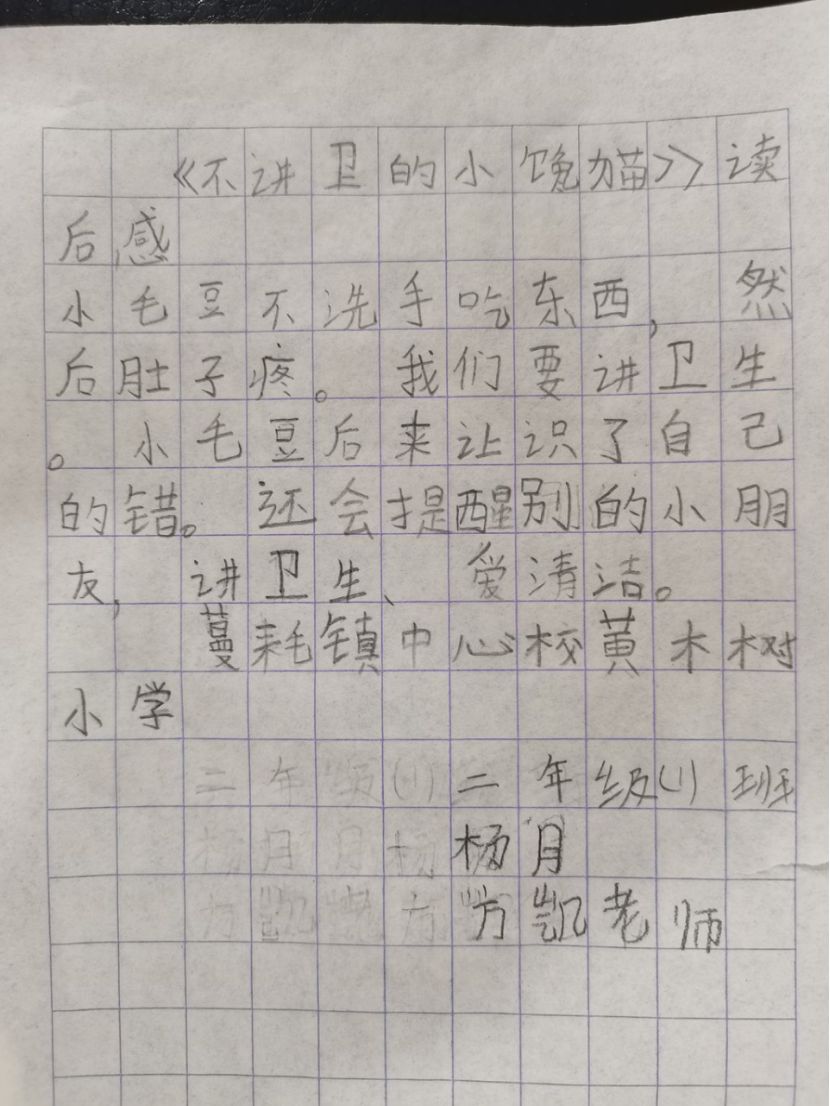 《不讲卫的小馋猫》读
后感
小毛豆不洗手吃东西，然
后肚子疼。我们要讲卫生
。小毛豆后来让识了自己
的错。还会提醒别的小朋
友，讲卫生、爱清洁。
蔓耗镇中心校黄木树
小学
二年级(1)班
杨月
方凯老师